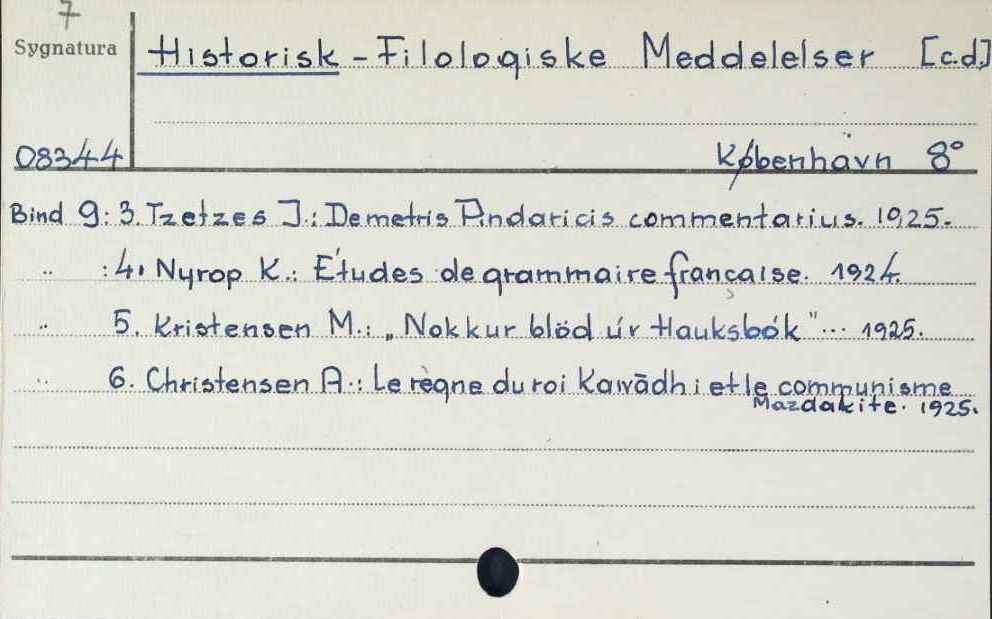 7
Sygnatura
Historisk - Filologiske Meddelelser [c.d.]
08344
København 8°
Bind 9: 3. Tzetzes J.: Demetris Pindaricis commentarius. 1925.
" : 4. Nyrop K.: Études de grammaire française. 1924.
" 5. Kristensen M.: „Nokkur blöd úr Hauksbók"... 1925.
" 6. Christensen A.: Le règne du roi Kawādh i et le communisme
Mazdakite. 1925.